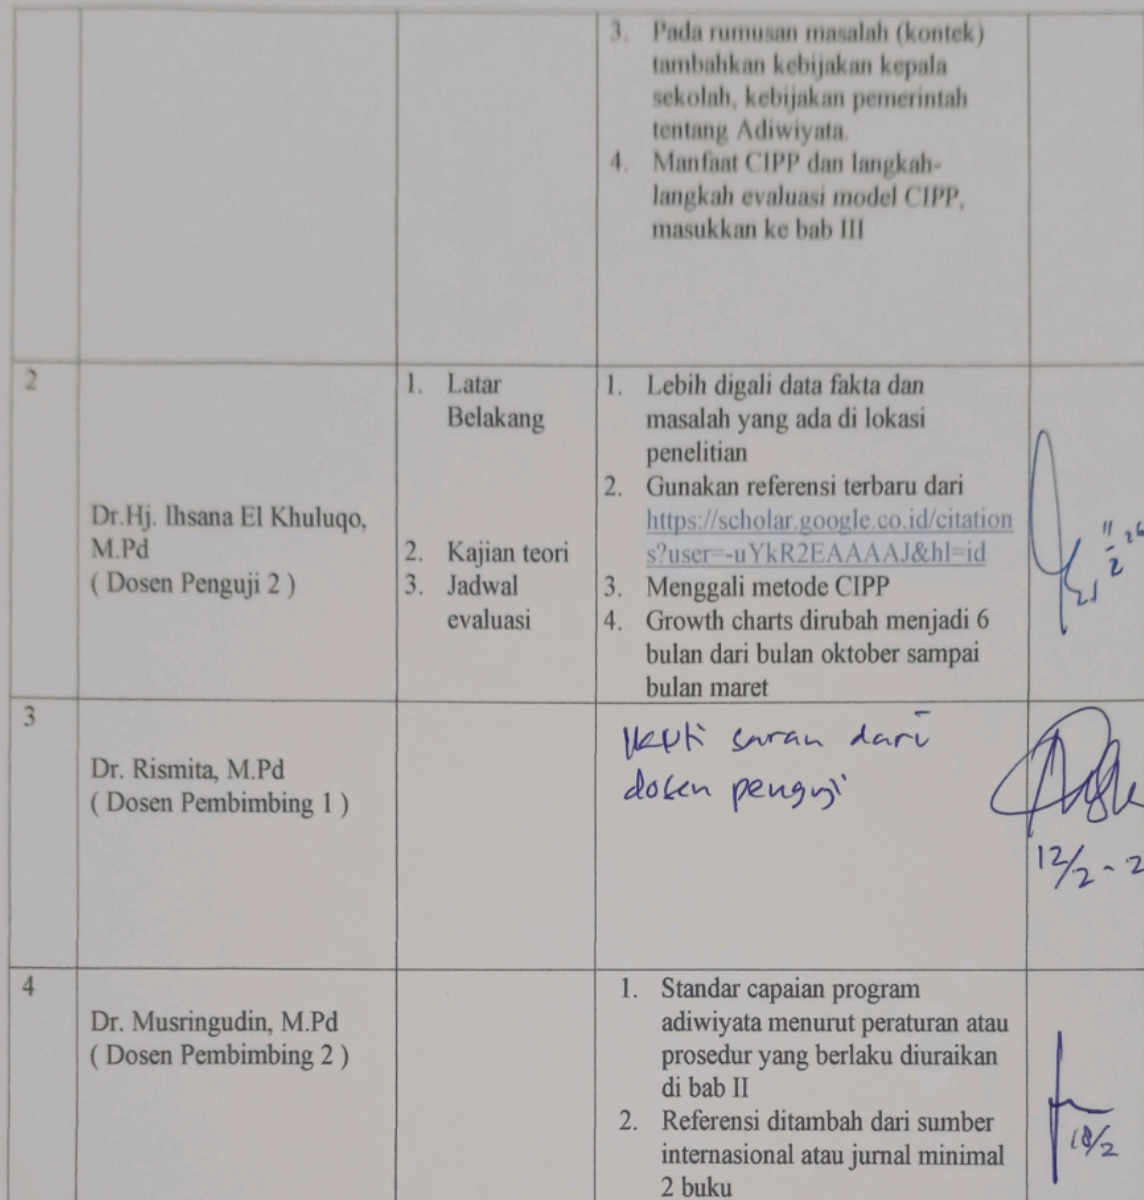 3. Pada rumusan masalah (kontek)
tambahkan kebijakan kepala
sekolah, kebijakan pemerintah
tentang Adiwiyata.
4. Manfaat CIPP dan langkah-
langkah evaluasi model CIPP,
masukkan ke bab III
2
Dr.Hj. Ihsana El Khuluqo,
M.Pd
( Dosen Penguji 2 )
1. Latar
Belakang
2. Kajian teori
3. Jadwal
evaluasi
1. Lebih digali data fakta dan
masalah yang ada di lokasi
penelitian
2. Gunakan referensi terbaru dari
https://scholar.google.co.id/citation
s?user=-uYkR2EAAAAJ&hl=id
3. Menggali metode CIPP
4. Growth charts dirubah menjadi 6
bulan dari bulan oktober sampai
bulan maret
3
Dr. Rismita, M.Pd
( Dosen Pembimbing 1 )
saran dari
dosen penguji
12/2 - 2
4
Dr. Musringudin, M.Pd
( Dosen Pembimbing 2 )
1. Standar capaian program
adiwiyata menurut peraturan atau
prosedur yang berlaku diuraikan
di bab II
2. Referensi ditambah dari sumber
internasional atau jurnal minimal
2 buku
18/2